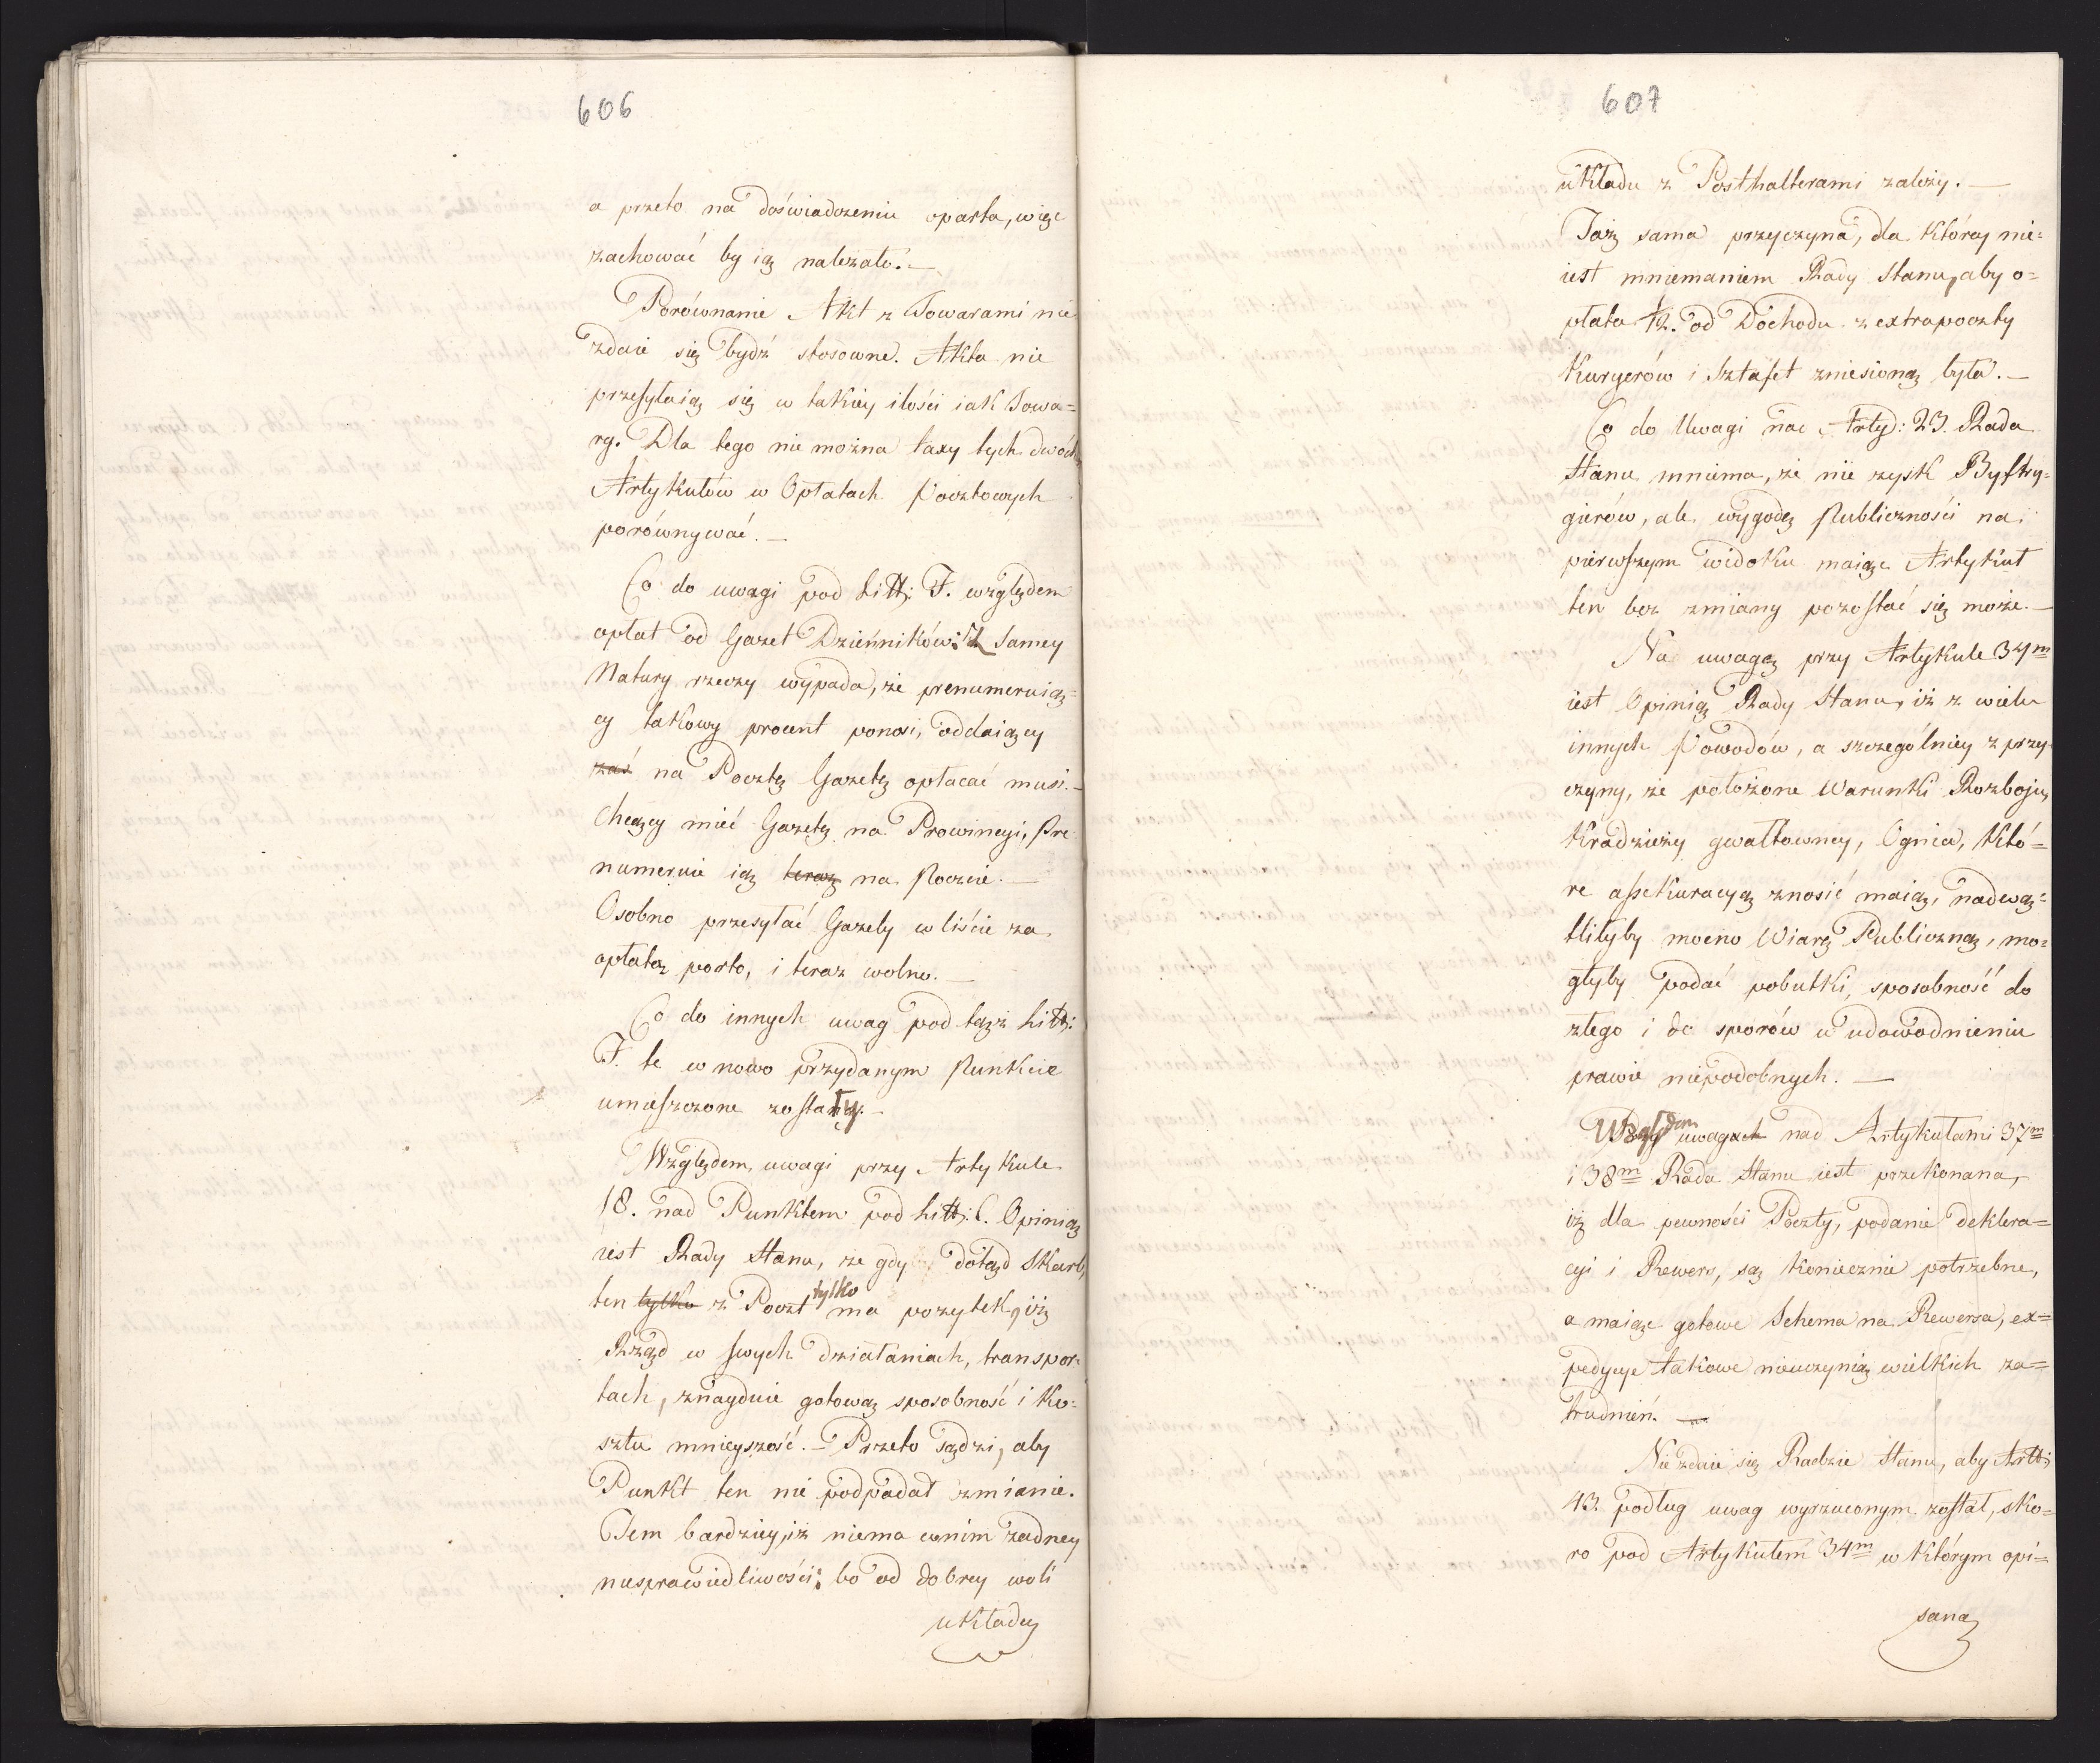 606
a przeto na doświadczeniu oparta, więc
zachować by ią należało. —
Porównanie Akt z Towarami nie
zdaie się bydź stosowne. Akta nie
przesyłaią się w takiey ilości iak Towa=
ry. Dla tego nie można taxy tych dwóch
Artykułów w Opłatach Pocztowych
porównywać. —
Co do uwagi pod Litt: F. względem
opłat od Gazet Dzienników: z samey
Natury rzeczy wypada, że prenumeruią=
cy takowy procent ponosi, oddaiący
zaś na Pocztę Gazetę opłacać musi. —
Chcący mieć Gazetę na Prowincyi, Pre
numeruie ią teraz na Poczcie. —
Osobno przesyłać Gazety w liście za
opłatą porto, i teraz wolno. —
Co do innych uwag pod tąż Litt:
F. te w nowo przydanym Punkcie
umieszczone zostały. —
Względem uwagi przy Artykule
18. nad Punktem pod Litt: C. Opinią
iest Rady Stanu, że gdy dotąd Skarb
ten tylko z Poczt tylko ma pożytek, iż
Rząd w swych działaniach, transpor=
tach, znayduie gotową sposobność i Ko=
sztu mnieyszość. — Przeto sądzi, aby
Punkt ten nie podpadał zmianie.
Tem bardziey, iż niema w nim żadney
niesprawiedliwości: bo od dobrey woli
układu
607
układu z Posthalterami zależy. —
Taż sama przyczyna, dla którey nie=
iest mniemaniem Rady Stanu, aby o=
płata 12. od Dochodu z extrapoczty
Kuryerów i Sztafet zniesioną była. —
Co do Uwagi nad Arty: 23. Rada
Stanu mniema, że nie zysk Bystry=
gierów, ale wygodę Publiczności na
pierwszym widoku maiąc Artykuł
ten bez zmiany pozostać się może. —
Na uwagę przy Artykule 34m
iest Opinią Rady Stanu, iż z wielu
innych Powodów, a szczególniey z przy=
czyny, że położone Warunki Rozboju,
Kradzieży gwałtowney, Ognia, Któ=
re assekuracyą znosić maią, nadwą=
tliłyby mocno Wiarę Publiczną, mo=
głyby podać pobutki, sposobność do
złego i do sporów w udowodnieniu
prawie niepodobnych. —
Względem uwagach nad Artykułami 37m
i 38m Rada Stanu iest przekonana,
iż dla pewności Poczty, podanie deklera=
cyi i Rewers, są koniecznie potrzebne,
a maiąc gotowe Schema na Rewersa, ex=
pedycye takowe nieuczynią wielkich za=
trudnień. —
Nie zdaie się Radzie Stanu, aby Artt:
43. podług uwag wyrzuconym został, sko=
ro pod Artykułem 34m w którym opi=
sana